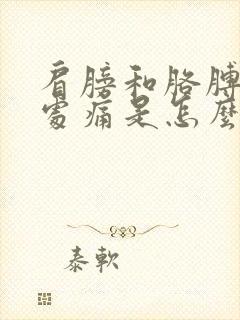 肩膀和胳膊
處痛是怎麼
泰軟